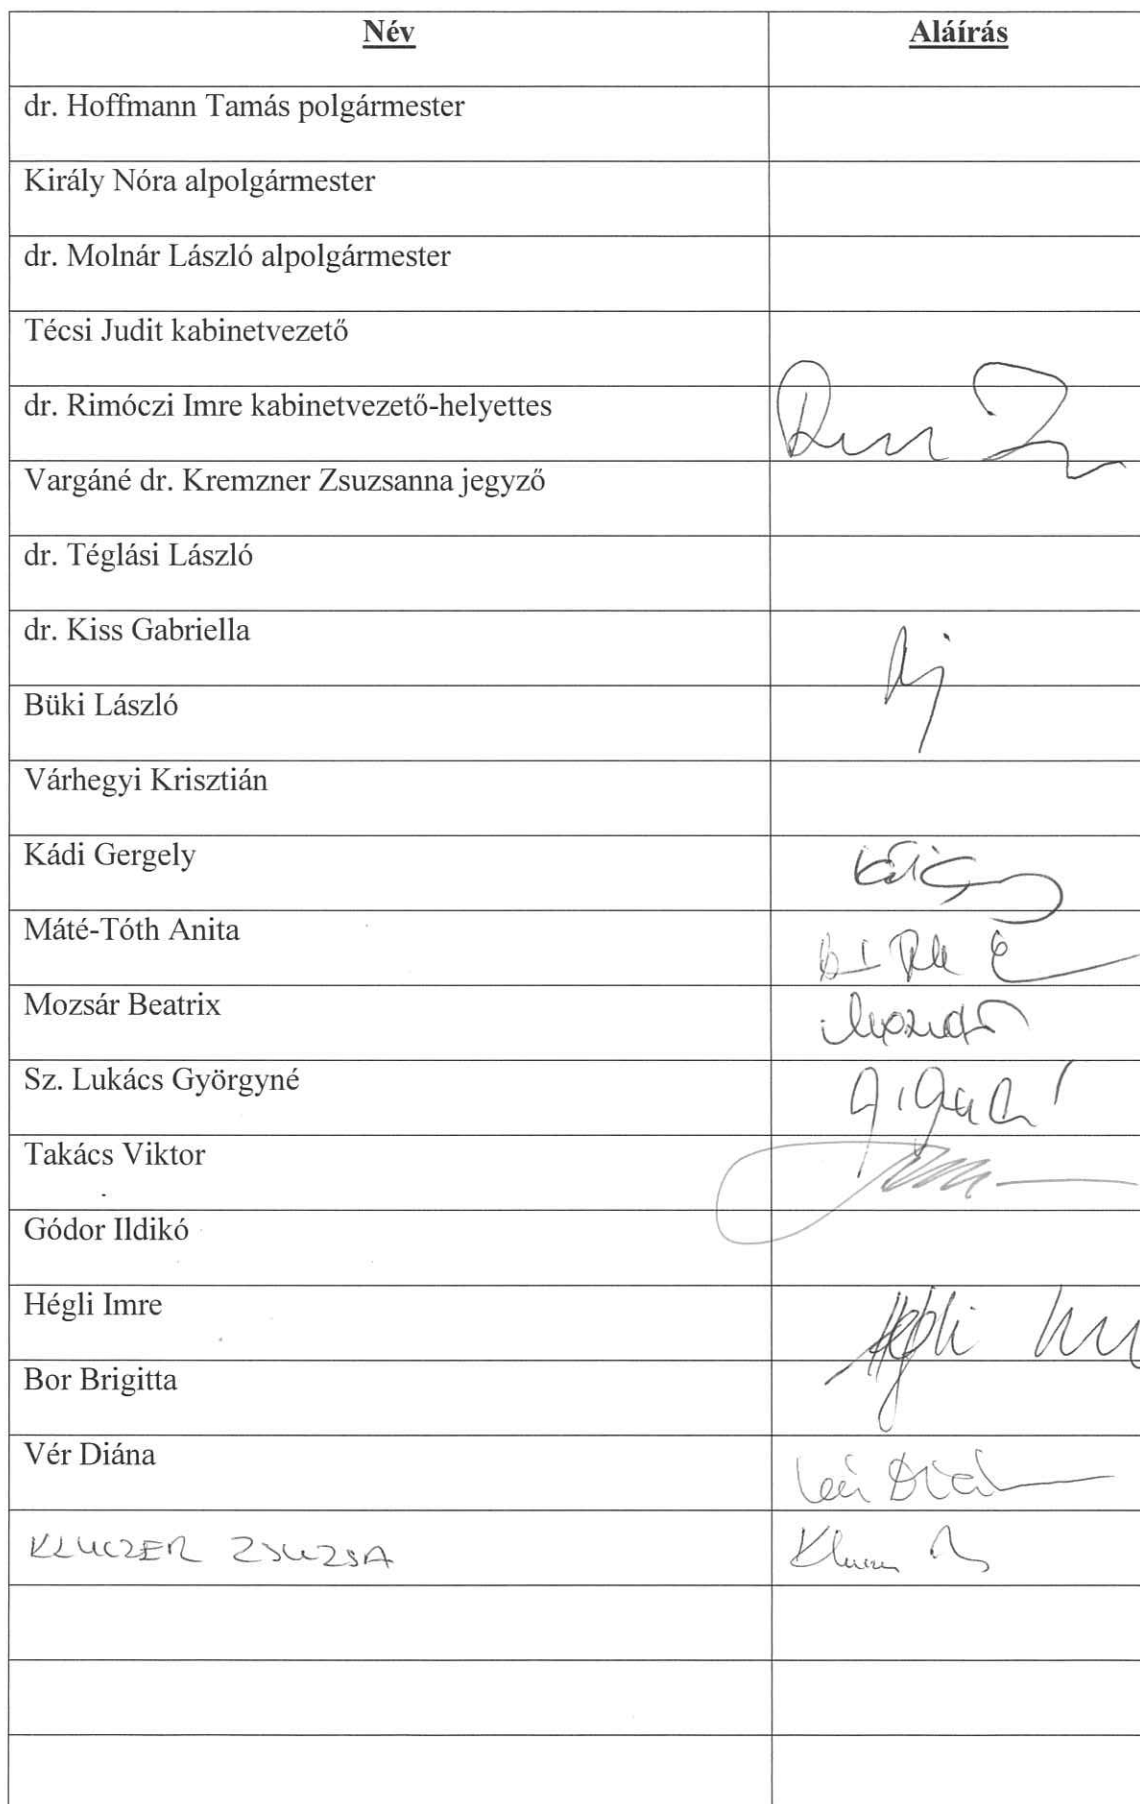 Név Aláírás
dr. Hoffmann Tamás polgármester
Király Nóra alpolgármester
dr. Molnár László alpolgármester
Técsi Judit kabinetvezető
dr. Rimóczi Imre kabinetvezető-helyettes
Vargáné dr. Kremzner Zsuzsanna jegyző
dr. Téglási László
dr. Kiss Gabriella
Büki László
Várhegyi Krisztián
Kádi Gergely
Máté-Tóth Anita
Mozsár Beatrix
Sz. Lukács Györgyné
Takács Viktor
Gódor Ildikó
Hégli Imre
Bor Brigitta
Vér Diána
KLUCZER ZSUZSA